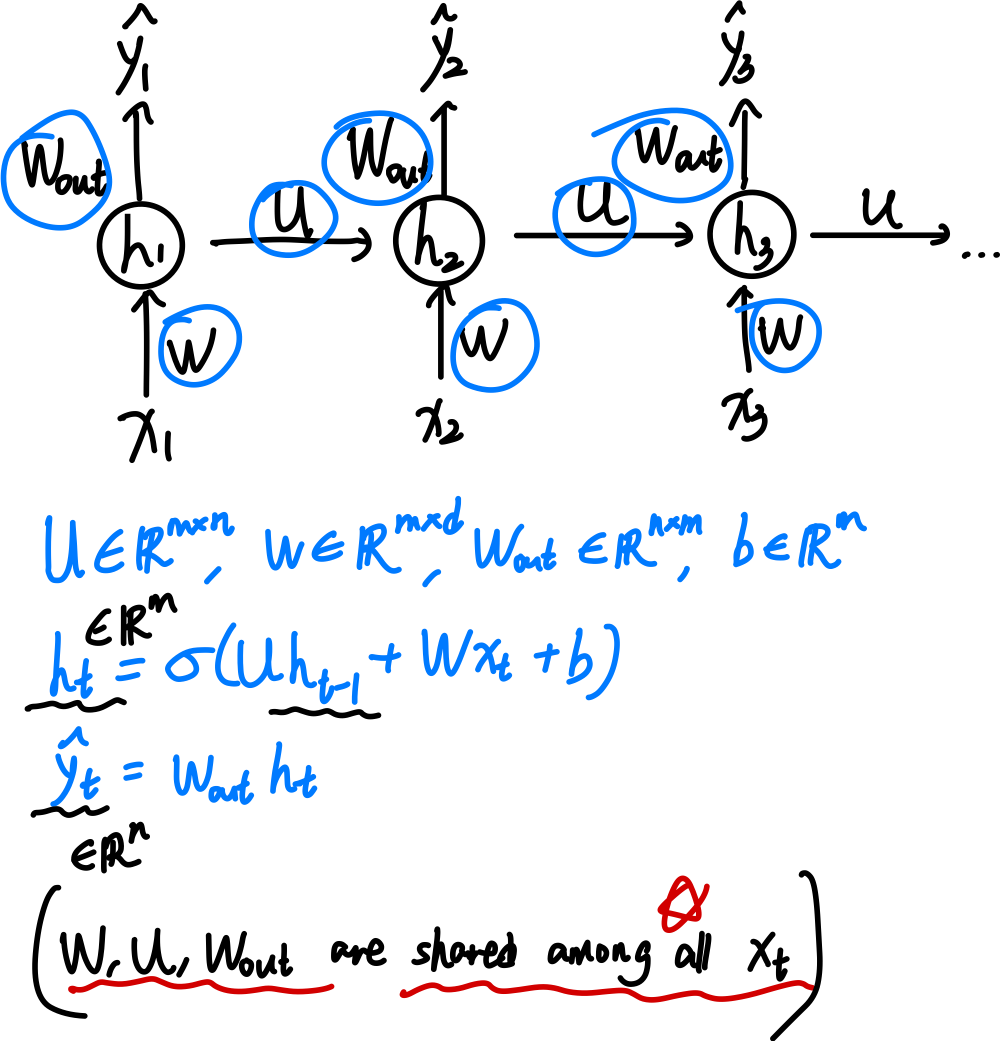 ŷ₁ ŷ₂ ŷ₃
Wout Wout Wout
U U U
h₁ h₂ h₃ ...
W W W
x₁ x₂ x₃
U ∈ ℝᵐˣⁿ, W ∈ ℝᵐˣᵈ, Wout ∈ ℝⁿˣᵐ, b ∈ ℝᵐ
∈ ℝᵐ
hₜ = σ(Uhₜ₋₁ + Wxₜ + b)
ŷₜ = Wout hₜ
∈ ℝⁿ
(W, U, Wout are shared among all xₜ)